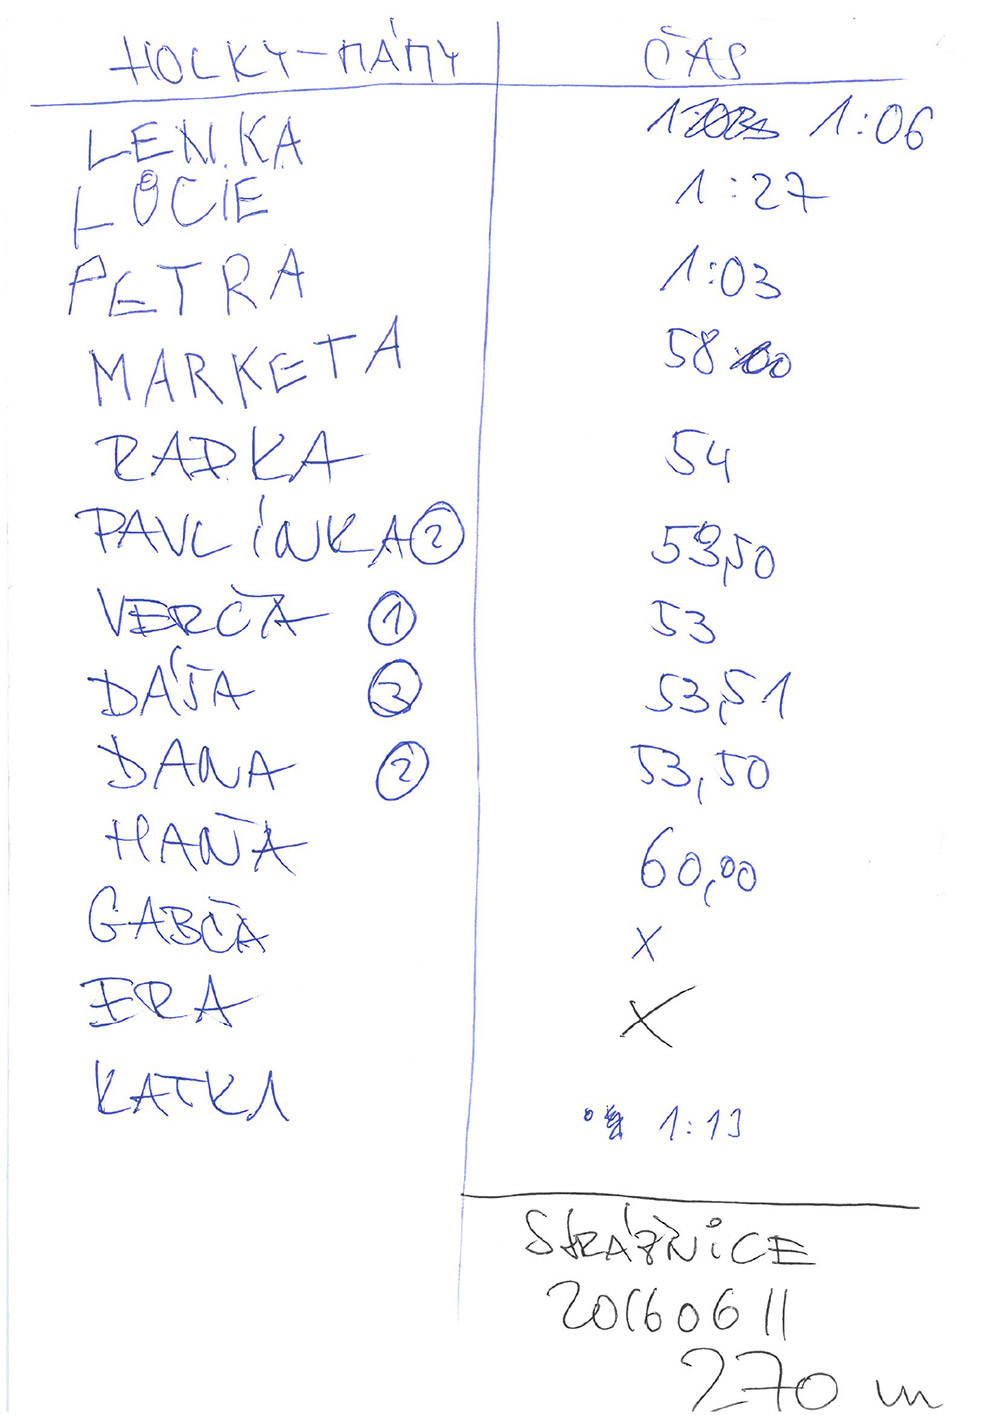 HOLKY-MÁMY ČAS
LENKA 1:06
LUCIE 1:27
PETRA 1:03
MARKETA 58
RADKA 54
PAVLÍNKA 2 53,50
VERČA 1 53
DÁŠA 3 53,51
DANA 2 53,50
HAŇA 60,00
GABČA X
ERA X
KATKA 1:13
STRÁŽNICE
20160611
270 m